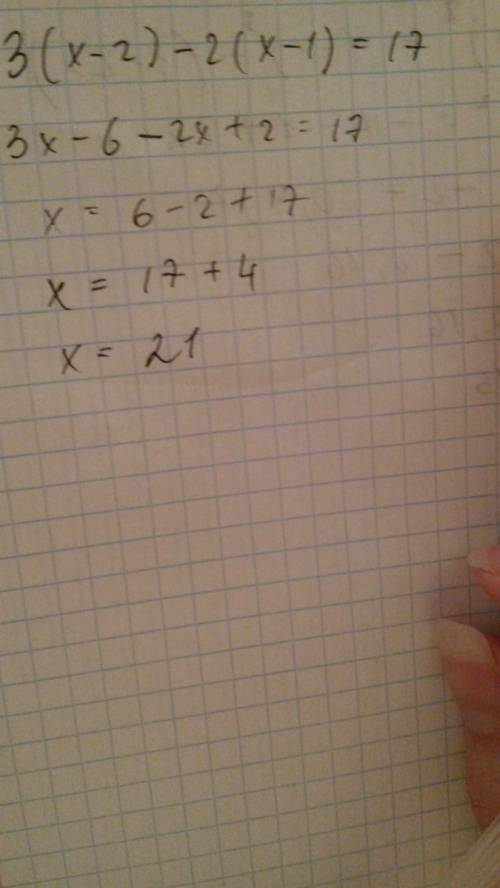 3(x-2)-2(x-1)=17
3x-6-2x+2=17
x = 6-2+17
x = 17+4
x = 21